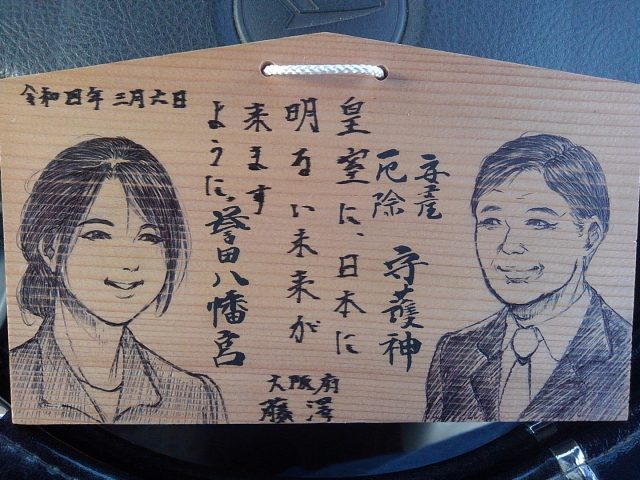 令和四年三月六日
安産
厄除
守護神
皇室に、日本に
明るい未来が
来ます
ように、
誉田八幡宮
大阪府
藤澤